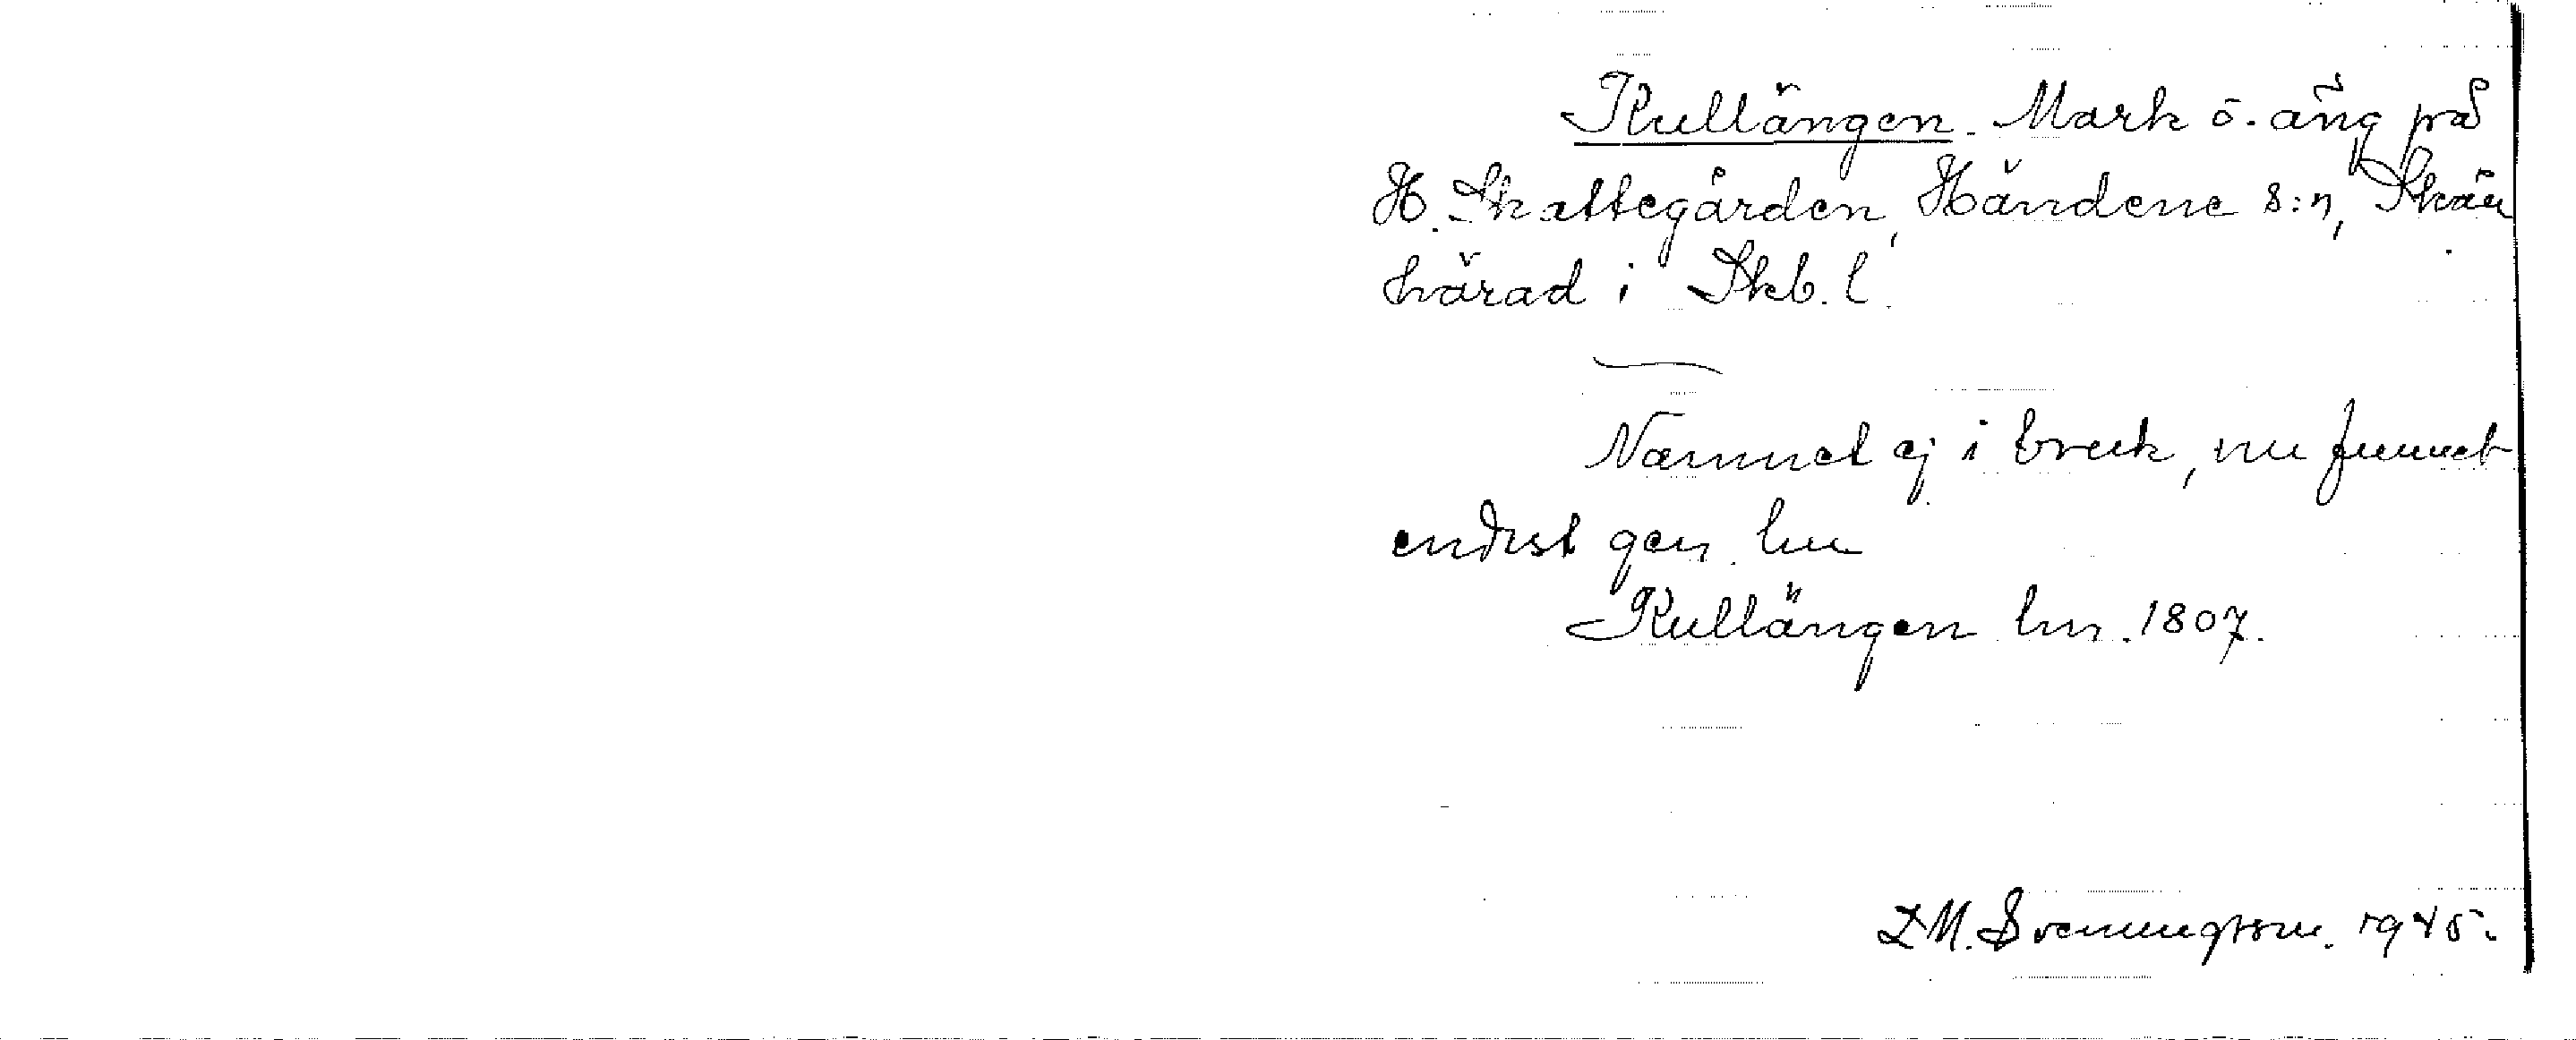 Kullängen. Mark o. äng på
H. Skattegården, Händene s:n,
härad i Skb. l.
Namnet ej i bruk, nu funnet
endast gen. lm
Kullängen lm. 1807.
D.M. Svenningsson. 1945.